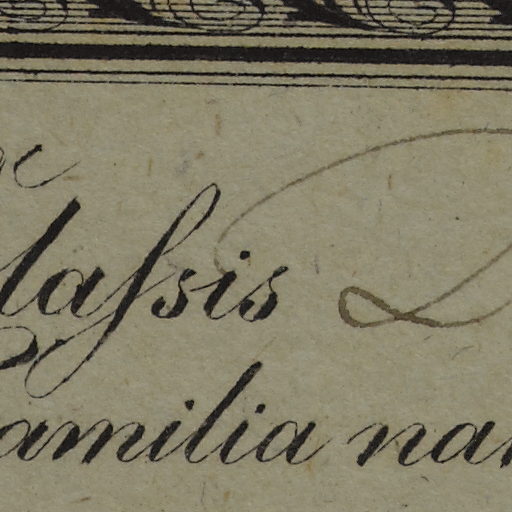 laſsis
amilia na